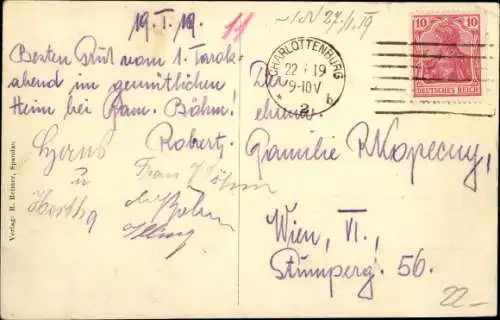 19.I.19.
11
27/1.19
Besten Gruß vom 1. Tarok-
abend im gemütlichen
Heim bei Fam. Böhm!
Robert.
u
Hertha
Frau Böhm
Verlag: R. Reimer, Spandau.
CHARLOTTENBURG
22 1 19
9-10V
* 2 b
10 10
DEUTSCHES REICH
Familie R Kopecny,
Wien, VI.,
Stumperg. 56.
22-